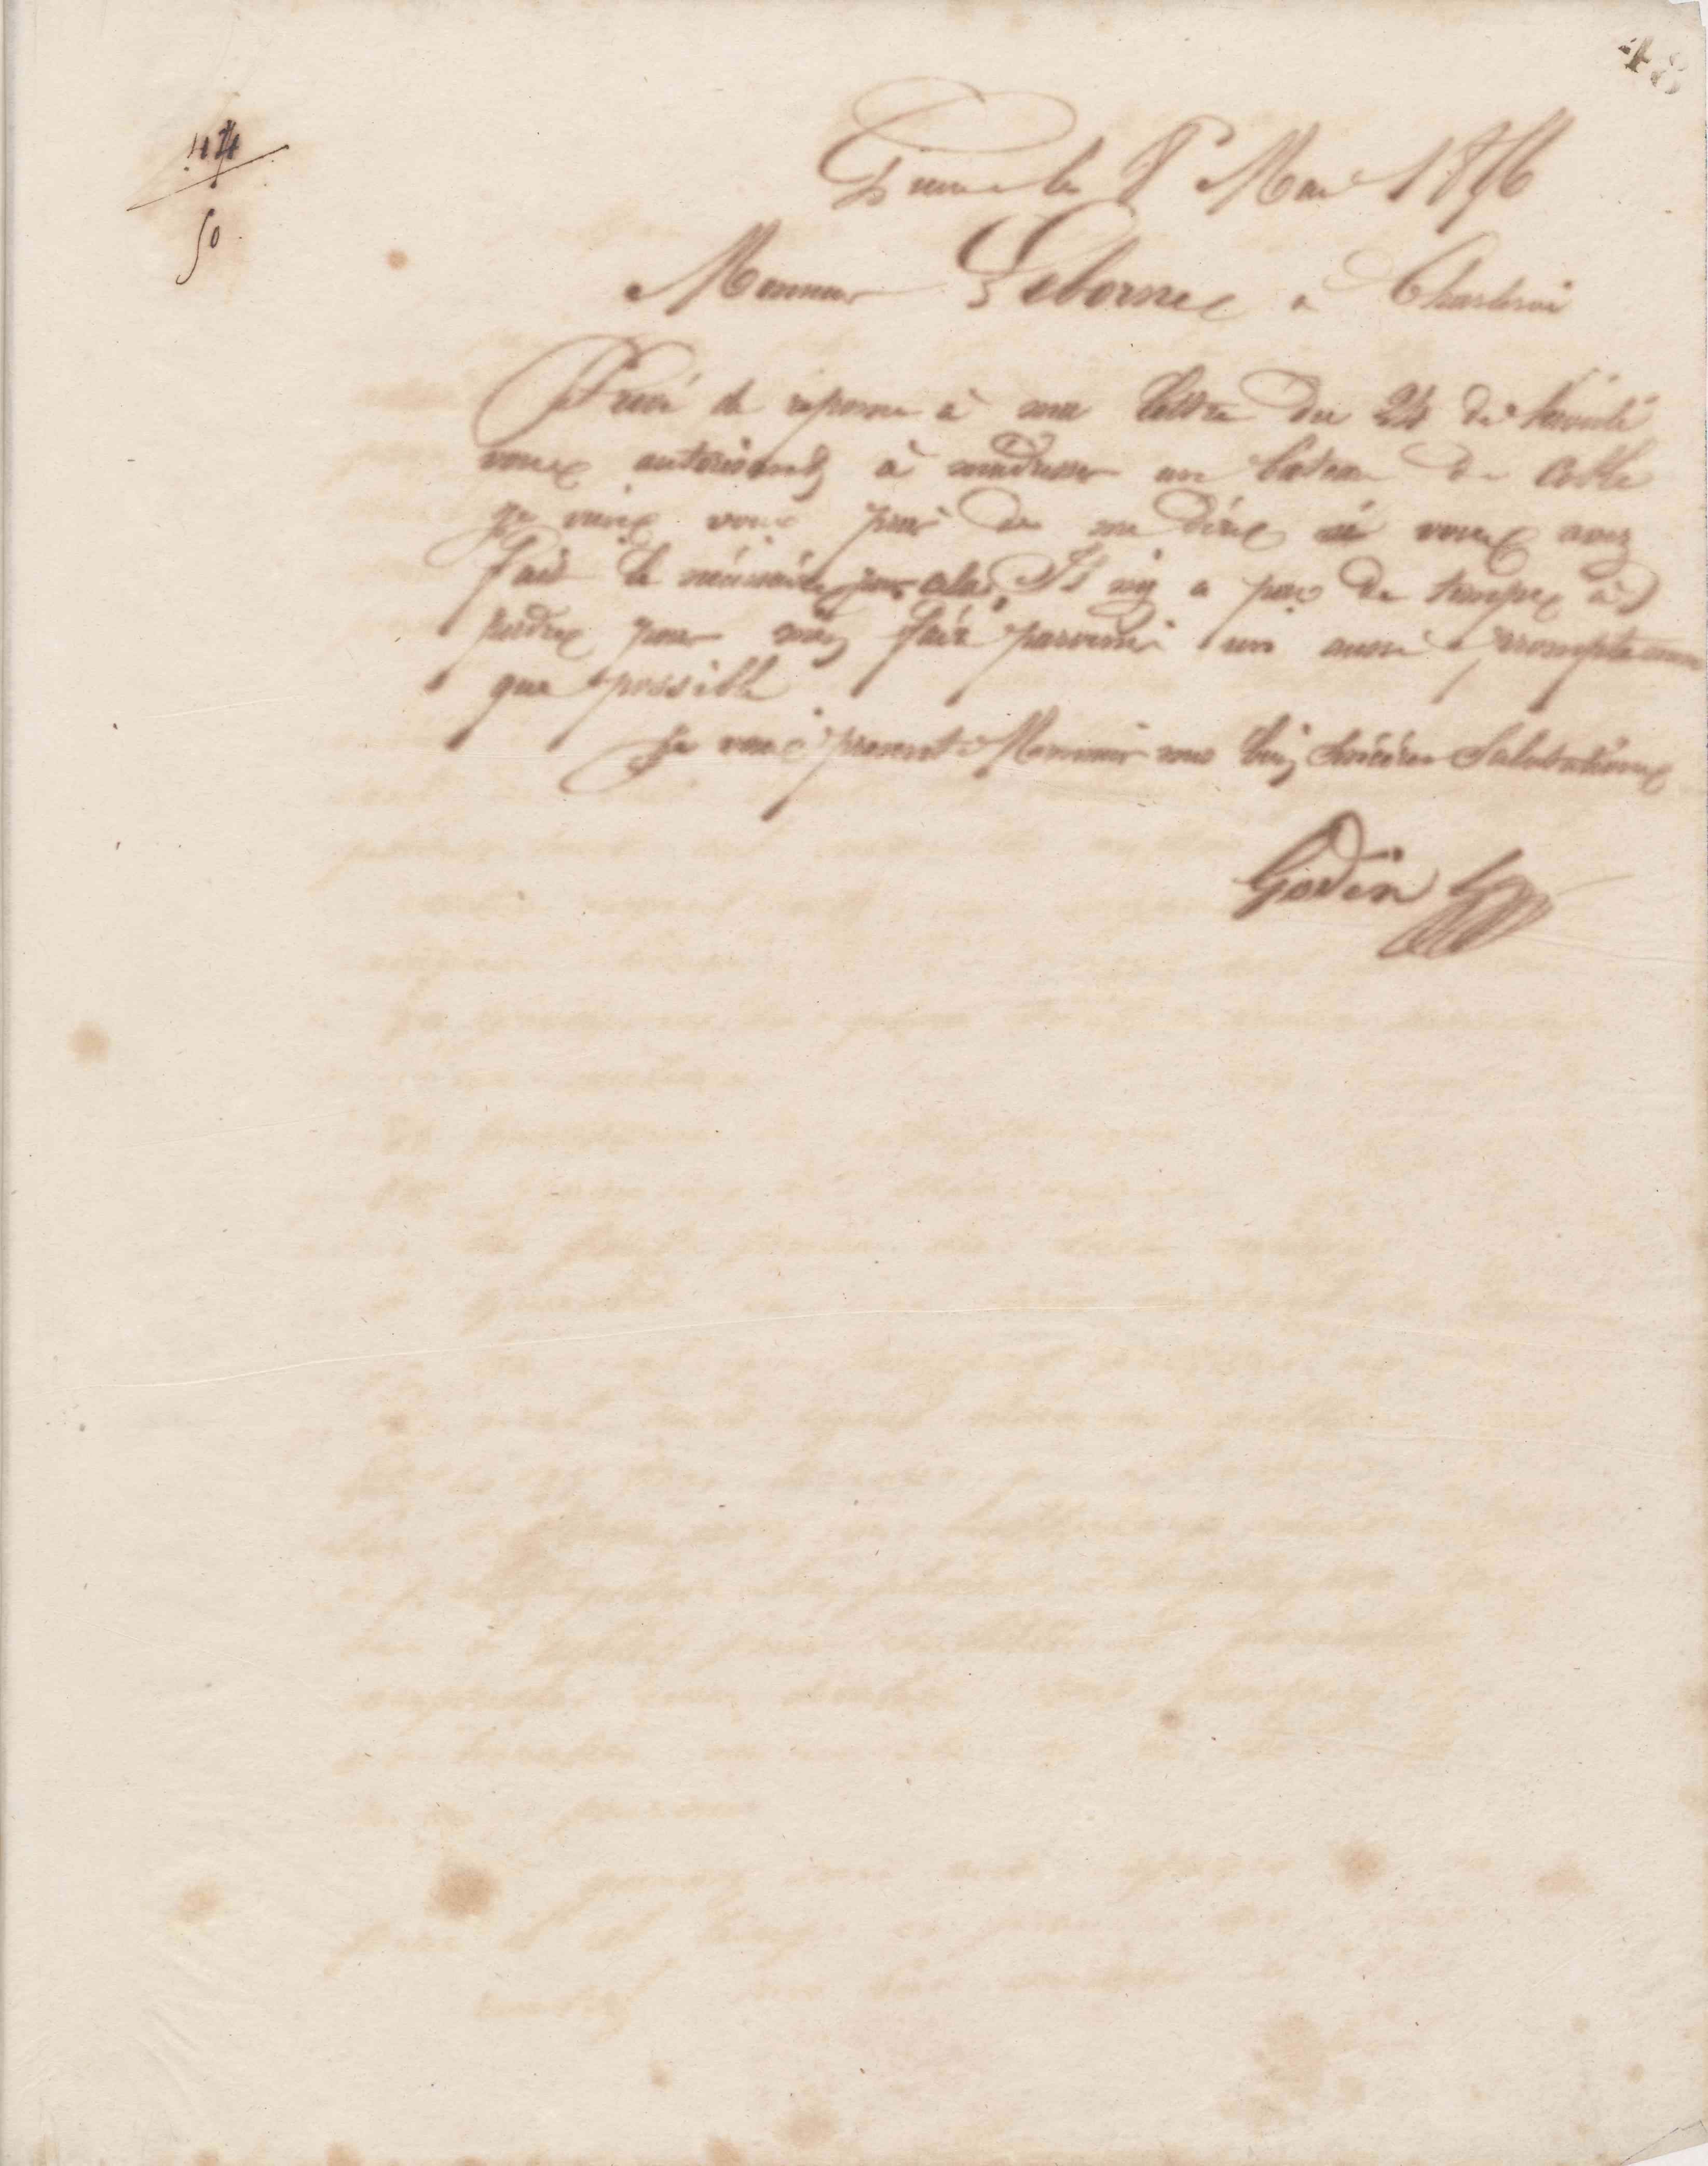 48
44
50
Guise le 8 Mai 1846
Monsieur Leborne à Charleroi
Privé de réponse à ma lettre du 24 de
vous autorisant à un bateau de coke
je viens vous prié de me dire si vous avez
fait le nécéssaire pour cela. Il ny a pas de temps à
perdre pour men faire parvenir un aussi promptement
que possible
Je vous présente Monsieur mes bien sincères Salutations
Godin